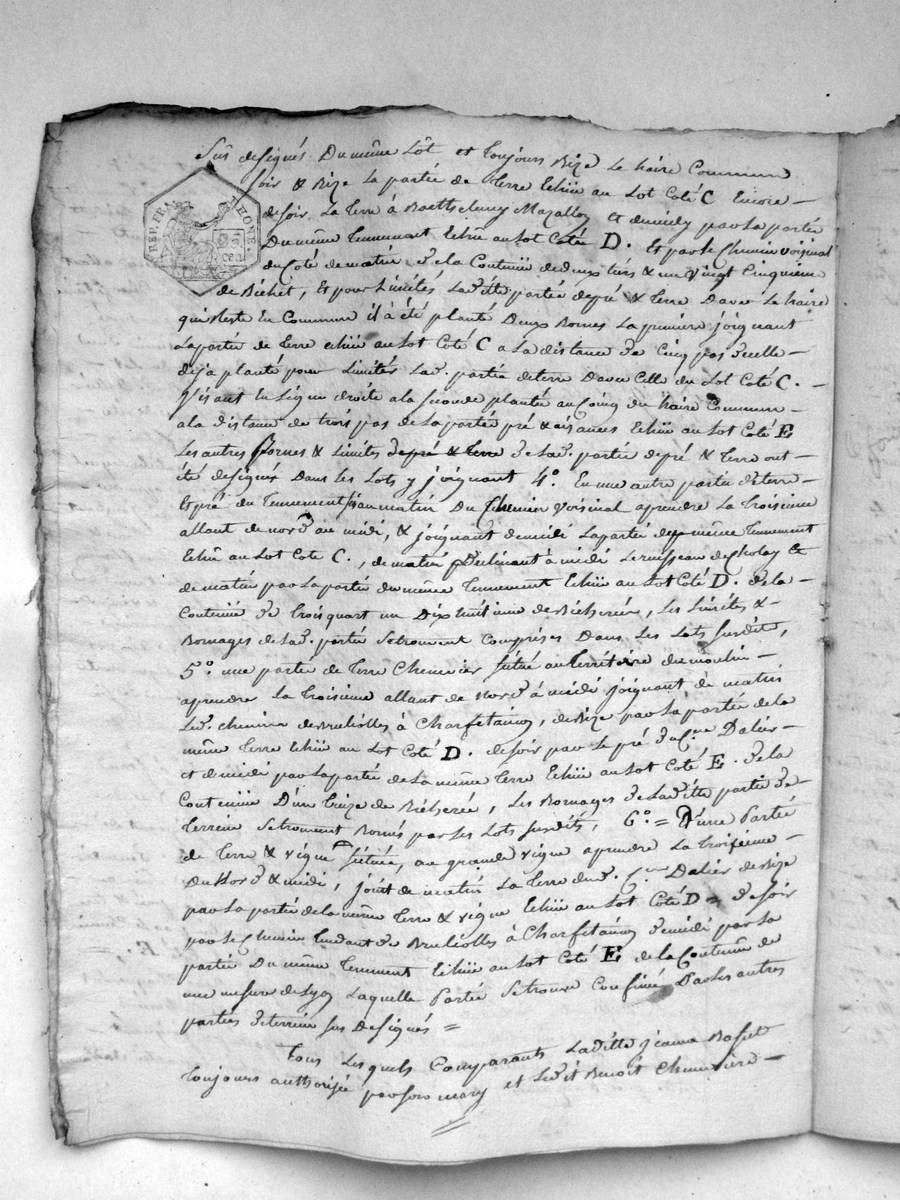 Sus désignés Du même Lôt et toujours Bize Le haire Commun
soir & Bize La partie de terre Echüe au Lot Coté C Encore
de soir La terre à Barthelemy Mazallon et dumidy par La partie
Du même tennement Echüe au Lot Coté D. Et par le Chemin voisinal
du Coté de matin de la Contenüe de deux tiers & un Vingt Cinquieme
de Bichet, Et pour Limités Laditte partie de pré & terre D'avec Le haire
qui Reste En Commun il à été planté Deux Bornes La premiere joignant
La partie de terre echüe au Lot Coté C a La distance de Cinq pas de celle
déja planté pour Limités Lad. partie de terre D'avec Celle du Lot Coté C.
Visant En Ligne droite a la seconde planté au Coing du haire Commun
a la distance de trois pas de La partie pré & aisances Echüe au Lot Coté E
Les autres Bornes & Limites de pré & terre de Lad. partie de pré & terre ont
été désigués Dans les Lots y joignant 4° En une autre partie de terre
Et pré du tennement sis au matin Du Chemin Voisinal aprendre La troisieme
allant de nord au midi, & joignant de midi La partie du même tennement
Echüe au Lot Coté C., de matin à midi Le ruisseau de &
de matin par La partie du même tennement Echüe au Lot Coté D. de La
Contenüe de trois quart un Dix huitieme de Bicherée, Les Limités &
Bornages de Lad. partie Se trouvent Comprises Dans Les Lots Susdits,
5° une partie de terre Chenevier Située au territoire du moulin
aprendre La troisieme allant de Nord à midi joignant de matin
Le d. chemin de Brulliolles à Charfetain, de Bize par La partie de la
même terre Echüe au Lot Coté D. de soir par le pré Dalier
et de midi par La partie de La même terre Echüe au Lot Coté E. de La
Contenüe D'un treize de Bicherée, Les Bornages de Laditte partie de
terrein Se trouvent Bornés par les Lots susdits, 6° = D'une Partie
de terre & vigne Située, au grande vigne aprendre La troisieme
Du Nord & midi, joint de matin La terre dud. Dalier de Bize
par La partie de la même terre & vigne Echüe au Lot Coté D = de soir
par le Chemin tendant de Brulliolles à Charfetain de midi par La
partie Du même tennement Echüe au Lot Coté E de la Contenüe de
une mesure de Lyon Laquelle Partie Se trouve Confinée Par les autres
parties de terrein sus Désignés =
Tous Lesquels Comparants Laditte jeanne
toujours authorisée par son mary et Ledit Benoit Chenevière
REP. FRA.
RHONE
25
cen.